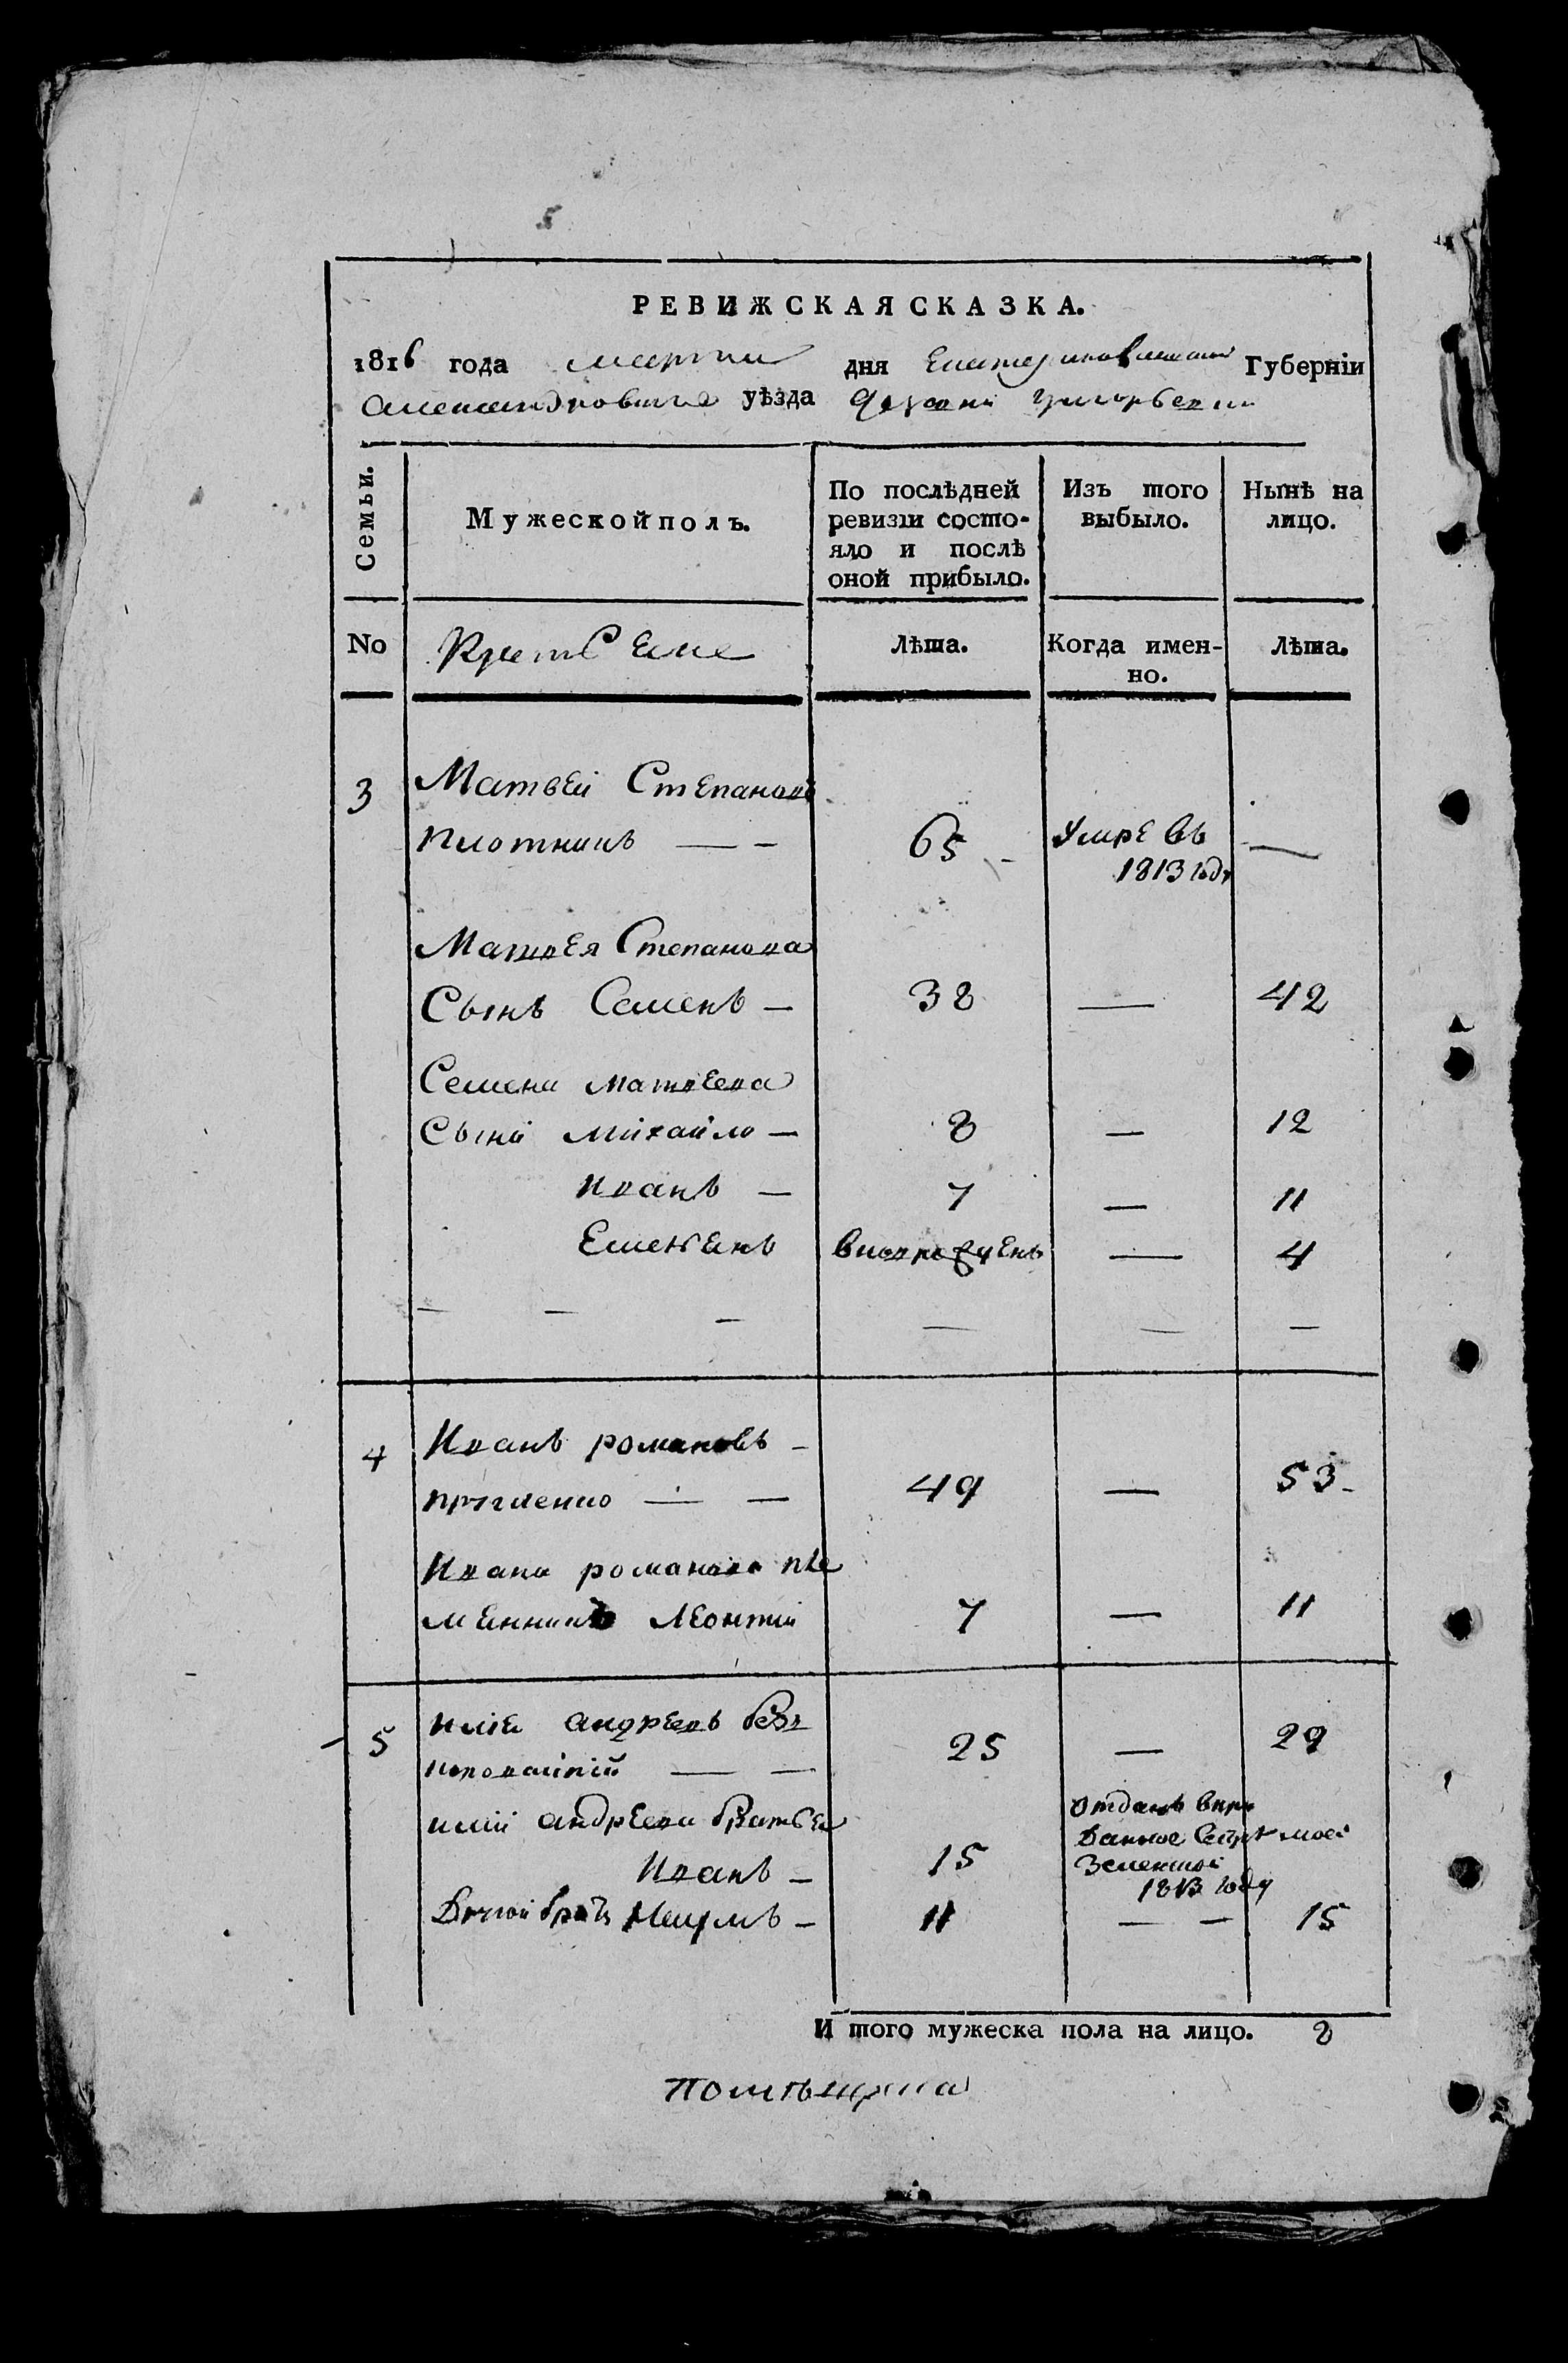 5
РЕВИЖСКАЯ СКАЗКА.
1816 года марта дня Екатеринославской Губерніи
Александровского уѣзда
Семьи.
Мужеской полъ.
По послѣдней ревизіи состо-
яло и послѣ
оной прибыло.
Изъ того
выбыло.
Нынѣ на
лицо.
No
Лѣта.
Когда имен-
но.
Лѣта.
3 Матвей Степановъ
Плотникъ — — 65 — умре въ —
1813 году
Матвея Степанова
Сынъ Семенъ — 38 — 42
Семена Матвеева
Сыны Михайло — 8 — 12
Иванъ — 7 — 11
Емельянъ — 4
— — — — — —
4 Иванъ романовъ —
49 — 53
Ивана романова пле
менникъ Леонтий 7 — 11
5 илiя андреевъ
— — 25 — 29
илии андреева братья
Иванъ — 15 отданъ
сестре моей
1813 году
братъ Наумъ — 11 — — 15
И того мужеска пола на лицо. 8
помѣщика